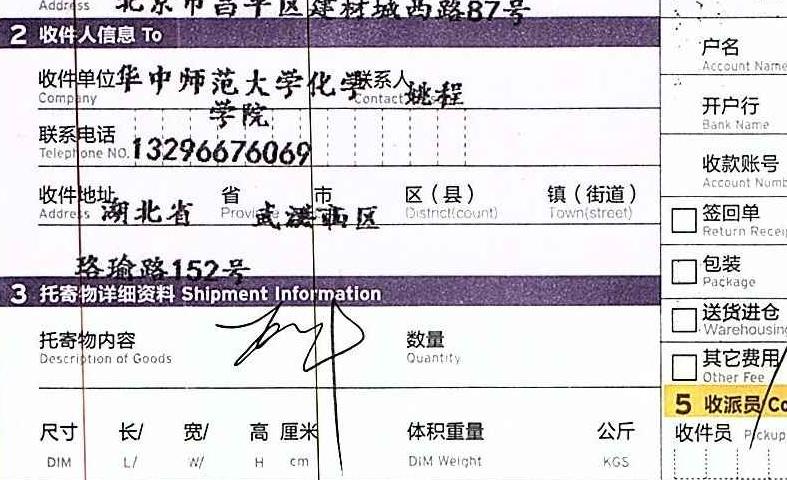 Address 北京市昌平区建材城西路87号
2 收件人信息 To
收件单位 华中师范大学化学 联系人 姚程
Company Contact
学院
联系电话
Telephone NO. 13296676069
收件地址 省 市 区（县） 镇（街道）
Address 湖北省 武汉 区 District(count) Town(street)
珞瑜路152号
3 托寄物详细资料 Shipment Information
托寄物内容 数量
Description of Goods Quantity
尺寸 长/ 宽/ 高 厘米 体积重量 公斤
DIM L/ W/ H cm DIM Weight KGS
户名
Account Name
开户行
Bank Name
收款账号
Account Numb
签回单
Return Recei
包装
Package
送货进仓
Warehousing
其它费用
Other Fee
5 收派员/Co
收件员 Pickup